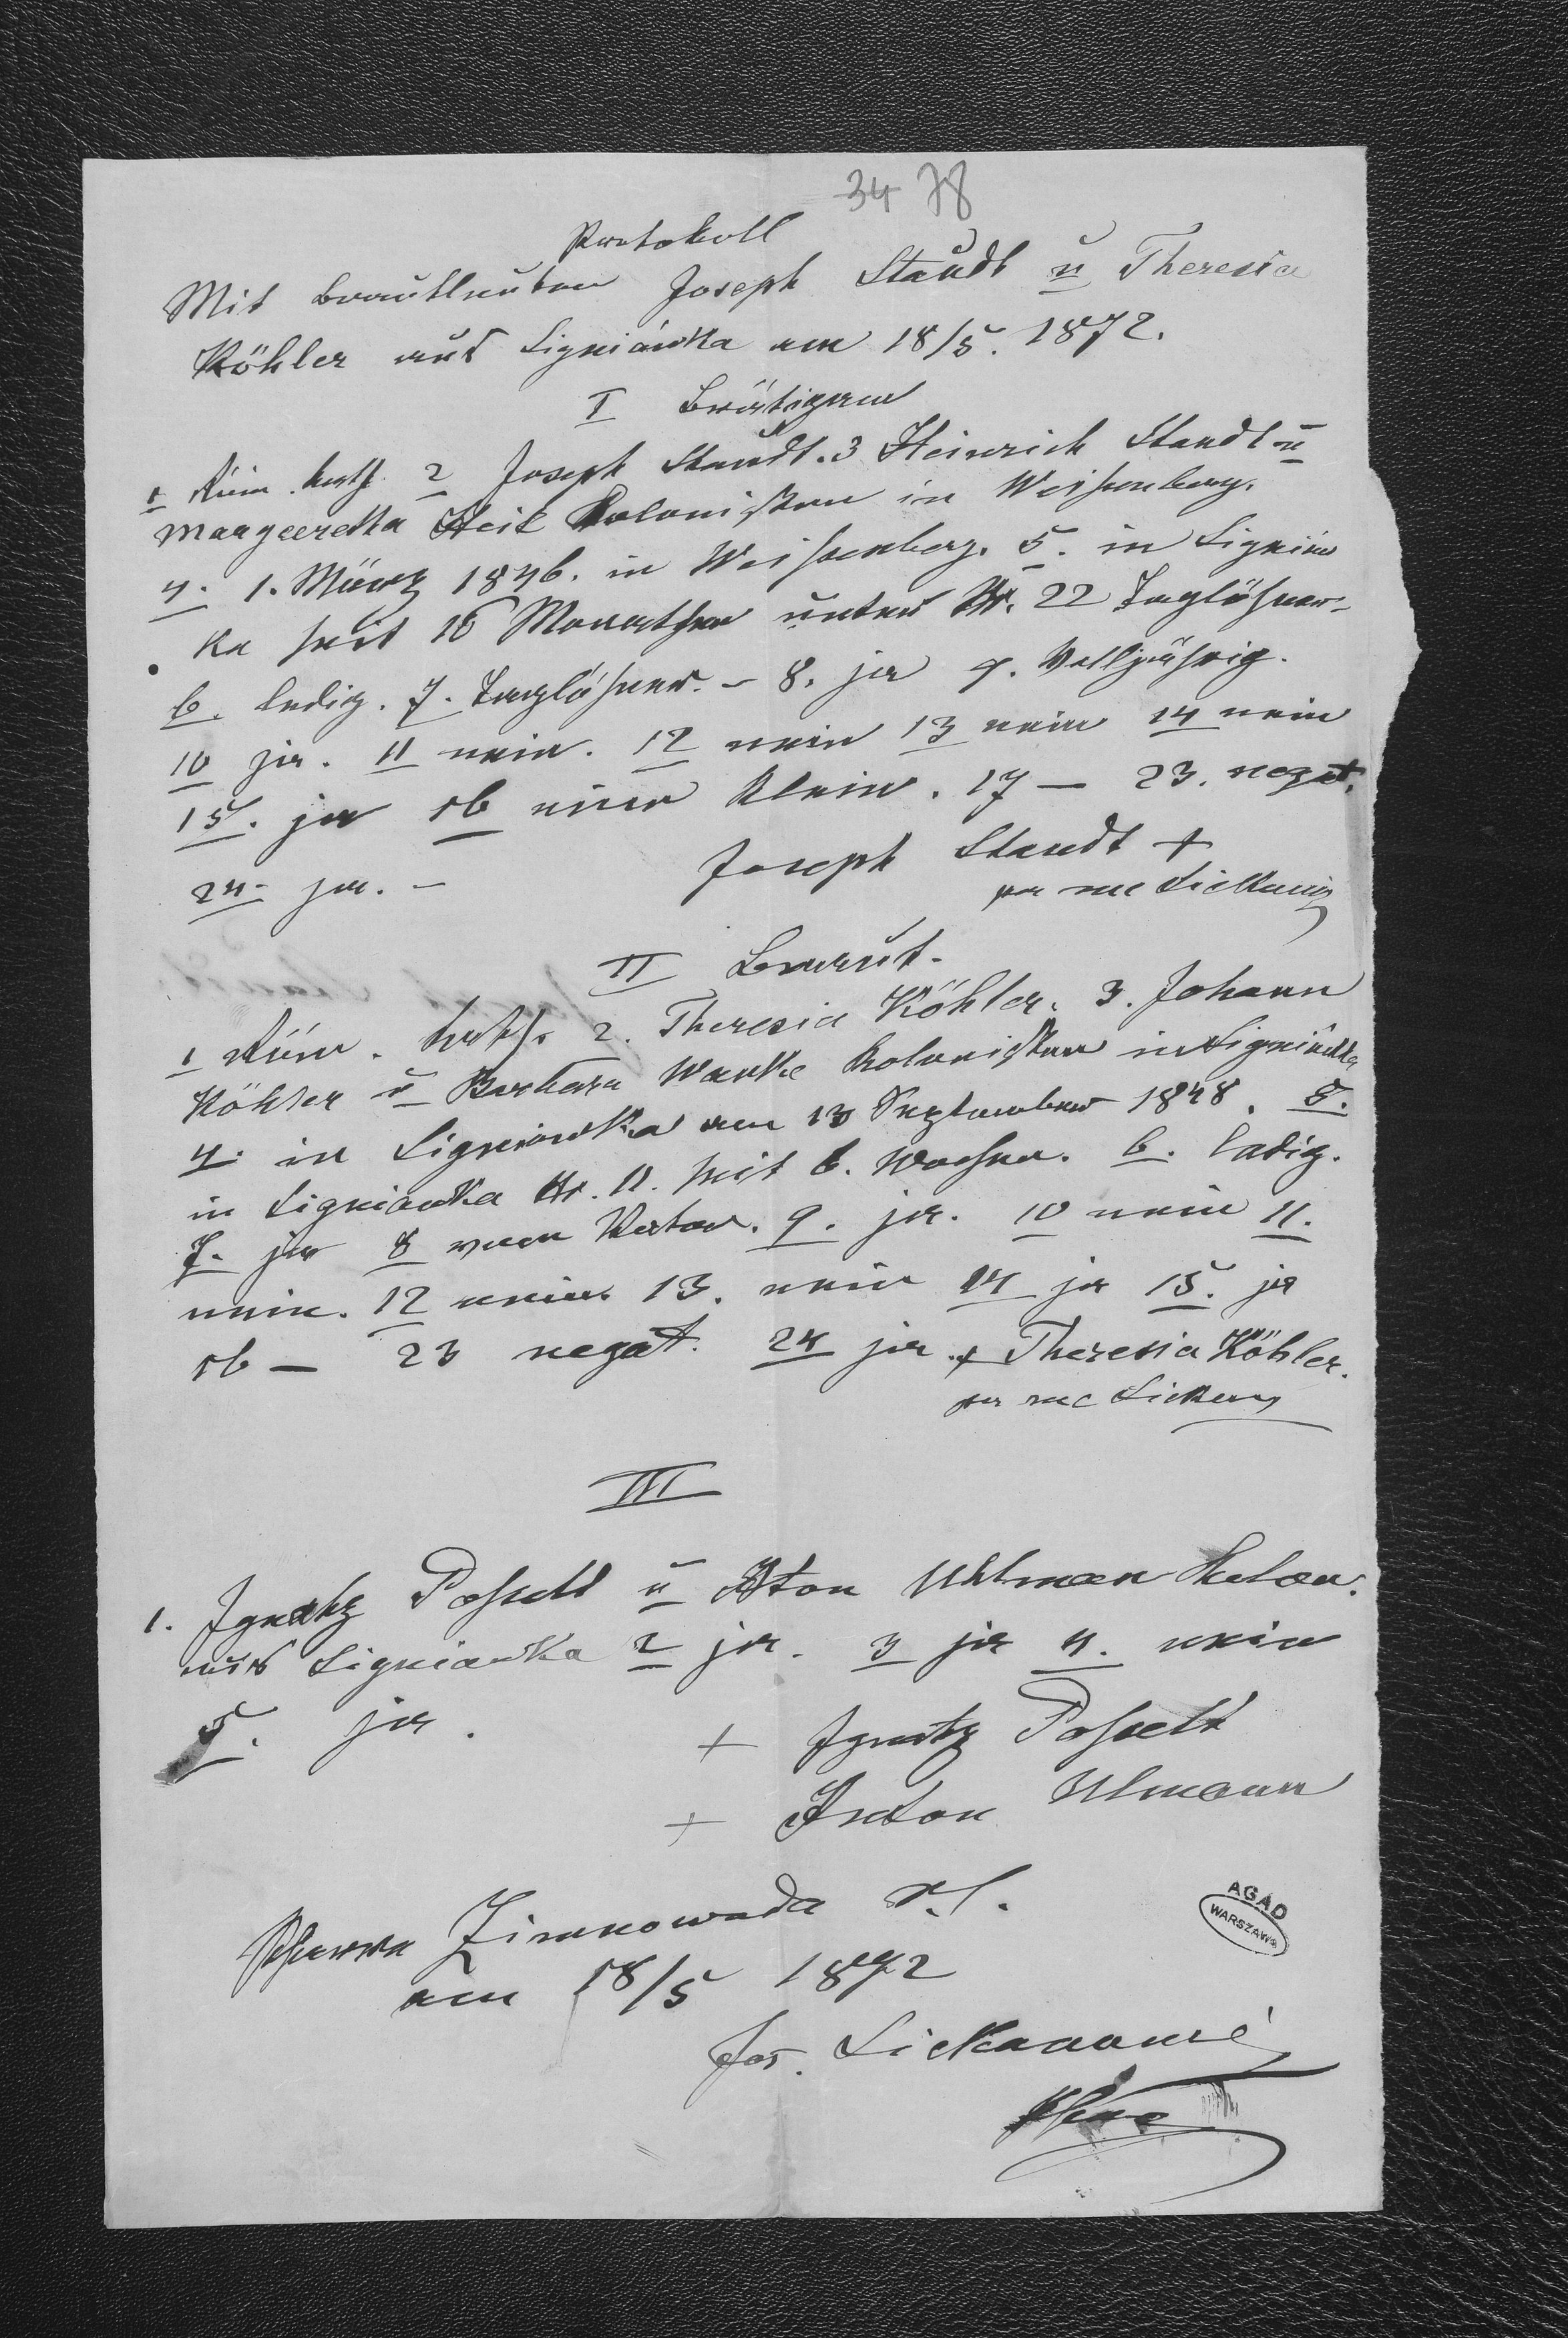 34 78
Protokoll
Mit Brautleuten Joseph Staudt u Theresia
Köhler aus Ligniówka am 18/5. 1872.
I Bräutigam
1 Röm. kath. 2 Joseph Staudt. 3 Heinrich Staudt u
Margaretha Heil Kolonisten in Weissenberg.
4. 1. März 1846. in Weissenberg. 5. in Ligniów
ka seit 16 Monathen unter Nr. 22 Taglöhner.
6. ledig. 7. Taglöhner. - 8. ja 9. Volljährig.
10 ja. 11 nein. 12 nein 13 nein 14 nein
15. ja 16 nein. 17 — 23. negat.
24. ja. - Joseph Staudt +
per me
II Braut.
1 Röm. kath. 2. Theresia Köhler. 3. Johann
Köhler u Barbara Kolonisten in Ligniówka
4. in Ligniowka am 13 September 1848. 5.
in Ligniowka Nr. 11. seit 6. Wochen. 6. ledig.
7. ja 8 vom Vater. 9. ja. 10 nein 11.
nein. 12 nein 13. nein 14 ja 15. ja
16 — 23 negat. 24 ja. + Theresia Köhler.
per me
III
1. Ignatz Posselt u Aton Uhlman Kolon.
aus Ligniowka 2 ja. 3 ja 4. nein
5. ja.
+ Ignatz Posselt
+ Anton Ulmann
Pfarre Zimnowoda r. l.
am 18/5 1872
Jos.
AGAD
WARSZAWA